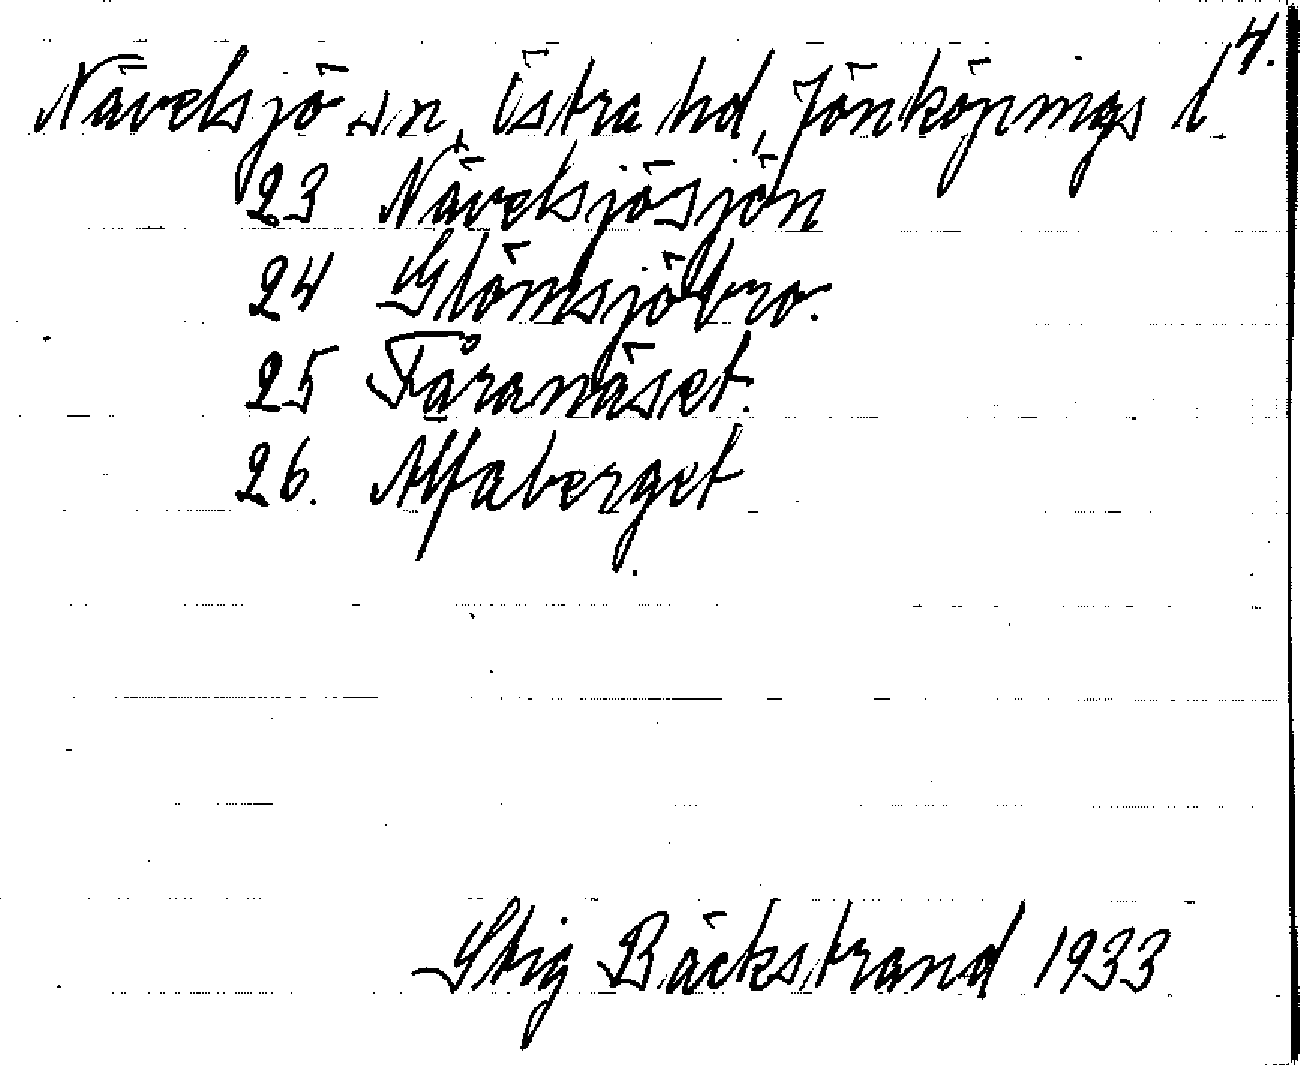 4.
Nävelsjö sn, Östra hd, Jönköpings l
23 Nävelsjösjön
24 Glömsjöbro.
25 Fåranäset.
26. Alfaberget
Stig Bäckstrand 1933